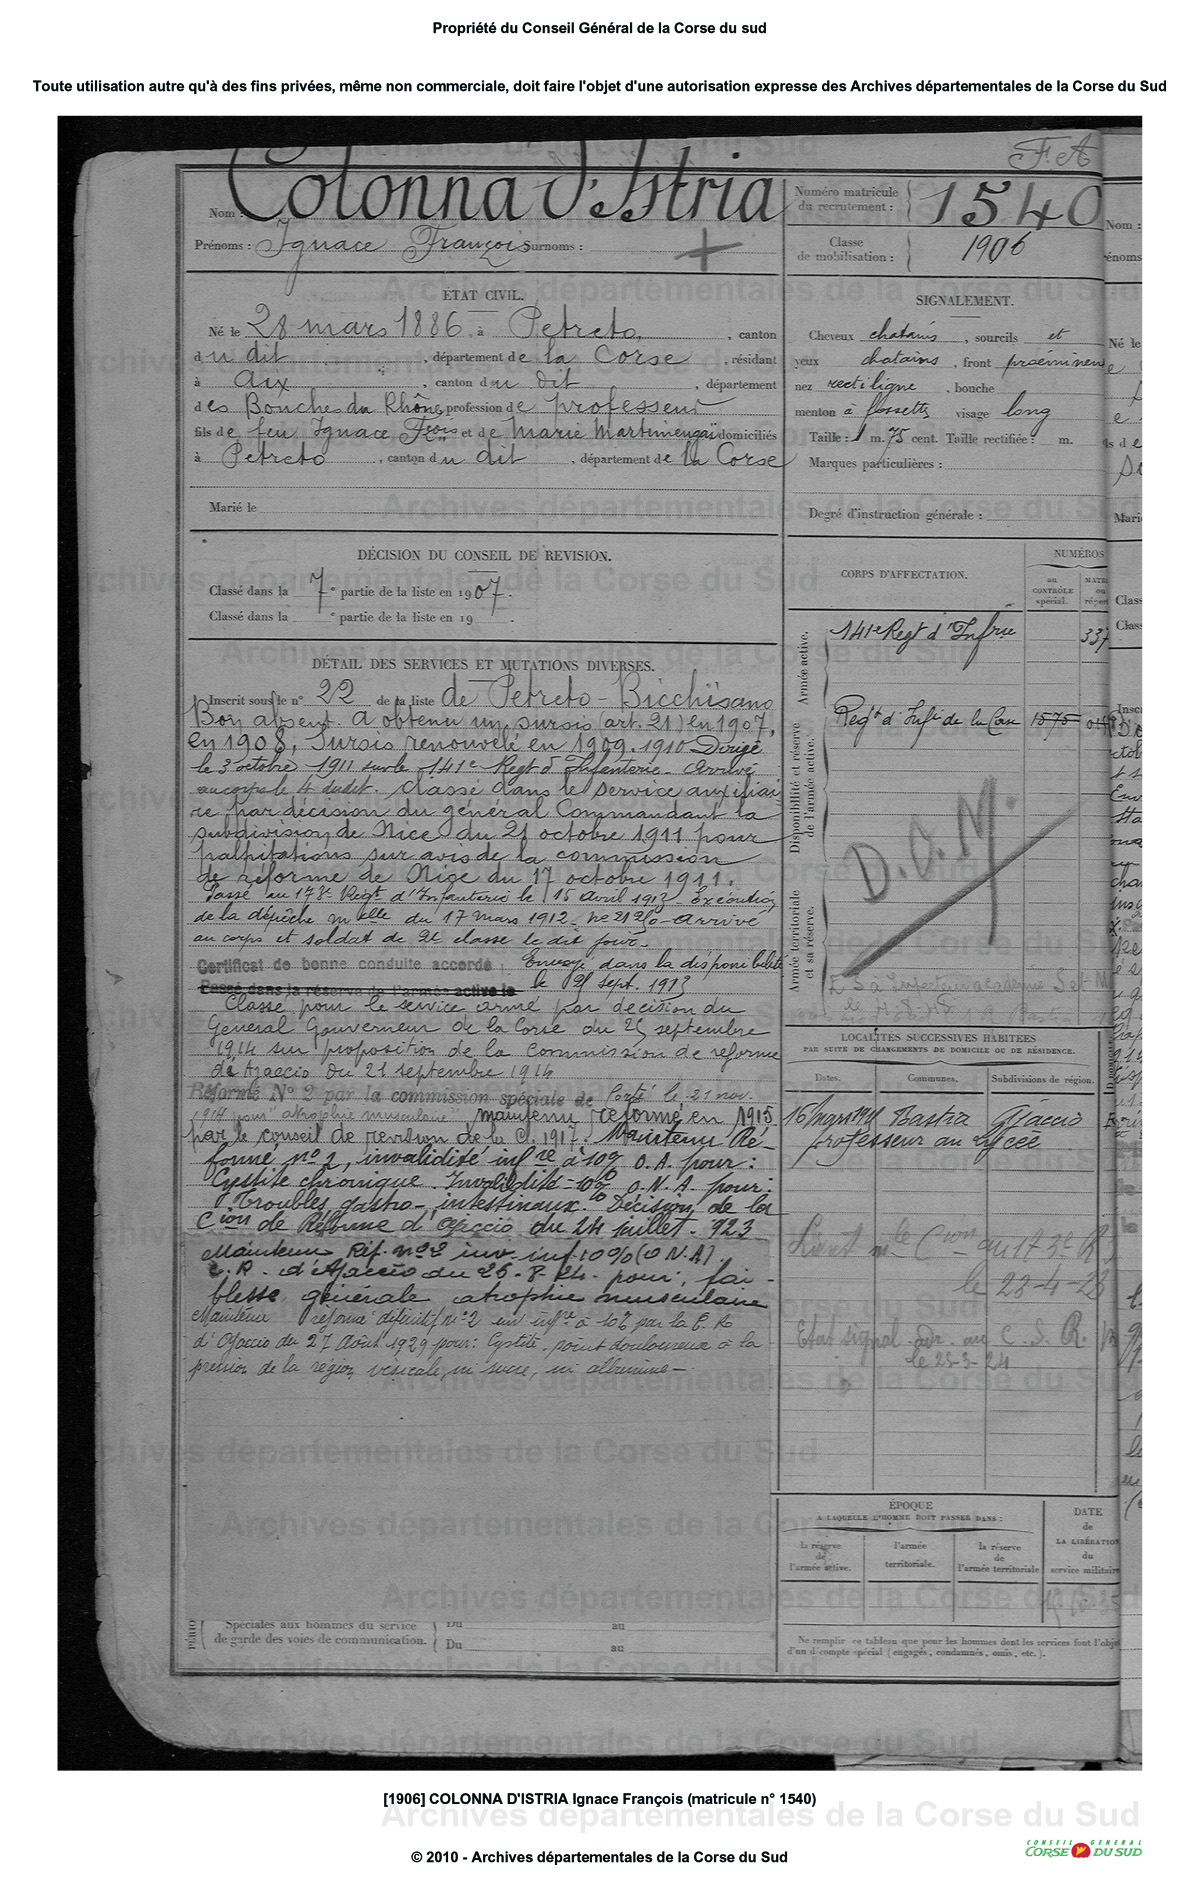 Propriété du Conseil Général de la Corse du sud
Toute utilisation autre qu'à des fins privées, même non commerciale, doit faire l'objet d'une autorisation expresse des Archives départementales de la Corse du Sud
F. A
Nom : Colonna d'Istria
Prénoms : Ignace François Surnoms :
Numéro matricule du recrutement : 1540
Classe de mobilisation : 1906
ÉTAT CIVIL.
Né le 28 mars 1886, à Petreto, canton
du dit, département de la Corse, résidant
à Aix, canton du dit, département
des Bouches du Rhône, profession de professeur
fils de feu Ignace Fçois et de Marie Martinengaï domiciliés
à Petreto, canton du dit, département de la Corse
Marié le
SIGNALEMENT.
Cheveux chatains, sourcils et
yeux chatains, front proéminent
nez rectiligne, bouche
menton à fossette visage long
Taille : 1 m. 75 cent. Taille rectifiée : m.
Marques particulières :
Degré d'instruction générale :
DÉCISION DU CONSEIL DE REVISION.
Classé dans la 7e partie de la liste en 1907.
Classé dans la e partie de la liste en 19 .
DÉTAIL DES SERVICES ET MUTATIONS DIVERSES.
Inscrit sous le n° 22 de la liste de Petreto-Bicchisano
Bon absent. a obtenu un sursis (art. 21) en 1907,
en 1908, Sursis renouvelé en 1909. 1910 Dirigé
le 3 octobre 1911 sur le 141e Regt d'Infanterie. Arrivé
au corps le 4 dudit. Classé dans le service auxiliai-
re par décision du général Commandant la
subdivision de Nice du 21 octobre 1911 pour
palpitations sur avis de la commission
de réforme de Nice du 17 octobre 1911.
Passé au 173e Regt d'Infanterie le 15 avril 1912 Exécution
de la dépêche melle du 17 mars 1912 - Arrivé
au corps et soldat de 2e classe le dit jour.
Certificat de bonne conduite accordé. Envoyé dans la disponibilité
Passé dans la réserve de l'armée active le le 25 sept. 1913
Classé pour le service armé par décision du
Général Gouverneur de la Corse du 25 septembre
1914 sur proposition de la Commission de réforme
de Ajaccio du 21 septembre 1914
Réformé N° 2 par la commission spéciale de Corté le 21 nov.
1914 pour "atrophie musculaire" maintenu réformé en 1915
par le conseil de revision de la C. 1917. Maintenu Ré-
formé n° 2, invalidité infre à 10% O.A. pour :
Cystite chronique. Invalidité = 10% O.N.A. pour :
Troubles gastro-intestinaux. Décision de la
Cion de Réforme d'Ajaccio du 24 juillet 923
Maintenu Réf. n° 2 inv. inf. 10% (O N.A)
C.R. d'Ajaccio du 25-8-24 pour : fai-
blesse générale atrophie musculaire
Maintenu réformé définitif n° 2 inv infre à 10% par la C. R
d'Ajaccio du 27 Août 1929 pour : Cystite, point douloureux à la
pression de la région vésicale, ni sucre, ni albumine -
CORPS D'AFFECTATION.
NUMÉROS
au CONTRÔLE spécial.
Armée active.
141e Regt d'Infrie 337
Disponibilité et réserve de l'armée active.
Regt d'Infie de la Corse 1575
Armée territoriale et sa réserve.
D.O.M.
LOCALITÉS SUCCESSIVES HABITÉES
PAR SUITE DE CHANGEMENTS DE DOMICILE OU DE RÉSIDENCE.
Dates. Communes. Subdivisions de région.
16 mars 1911 Bastia Ajaccio
professeur au lycée
le 23-4-23
Etat signal. adr. au C. S. R.
le 25-3-24
ÉPOQUE
A LAQUELLE L'HOMME DOIT PASSER DANS :
la réserve de l'armée active.
l'armée territoriale.
la réserve de l'armée territoriale
DATE de LA LIBÉRATION du service militaire
Spéciales aux hommes du service
de garde des voies de communication.
Du au
Du au
Ne remplir ce tableau que pour les hommes dont les services font l'objet
d'un décompte spécial (engagés, condamnés, omis, etc.).
Archives départementales de la Corse du Sud
[1906] COLONNA D'ISTRIA Ignace François (matricule n° 1540)
© 2010 - Archives départementales de la Corse du Sud
CONSEIL GENERAL
CORSE DU SUD